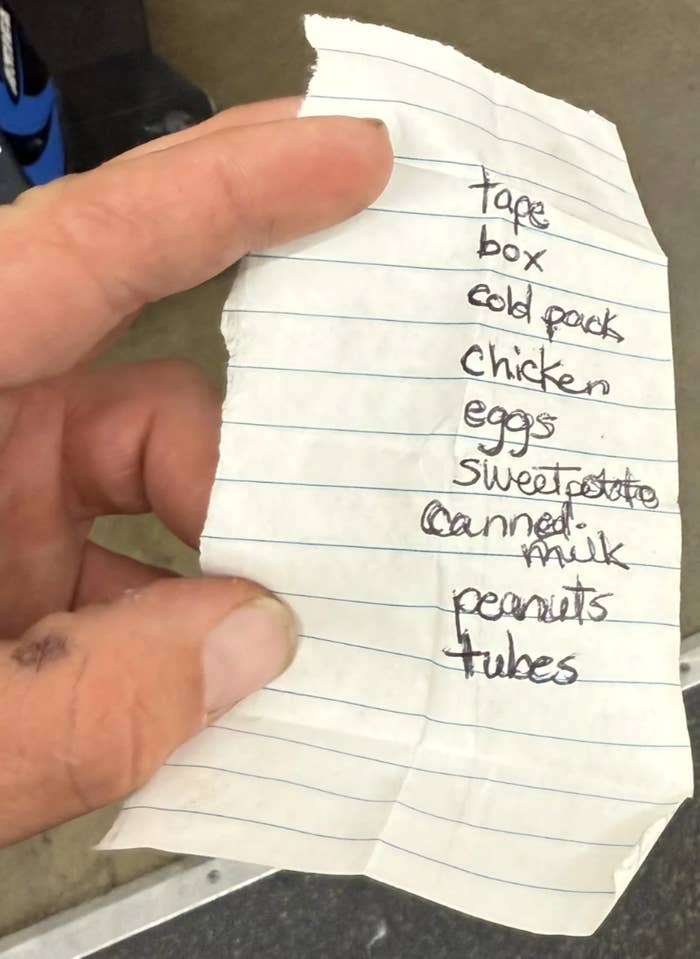 tape
box
cold pack
chicken
eggs
sweet potato
canned.
milk
peanuts
tubes